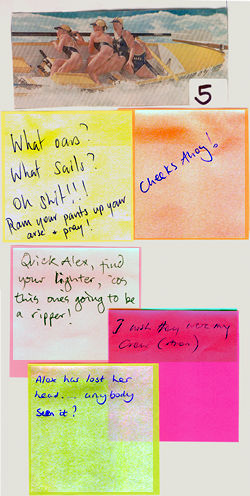 5
What oars?
What Sails?
Oh shit!!!
Ram your pants up your
arse & pray!
Cheeks Ahoy!
Quick Alex, find
your lighter, 'cos
this ones going to be
a ripper!
I wish they were my
Crew
Alex has lost her
head... anybody
seen it?